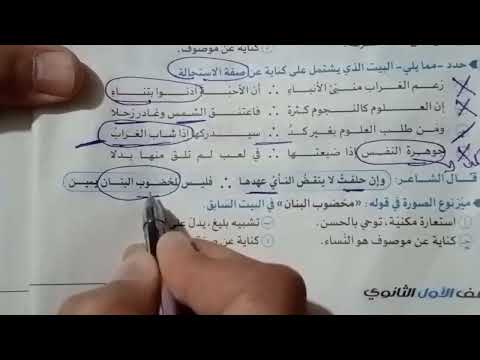 كناية عن موصوف.
حدد -مما يلي- البيت الذي يشتمل على كناية عن صفة الاستحالة
زعم الغراب منبئ الأنباء ∴ أن الأحبة آذنوا بتناء
إن العلوم كالنجوم كثرة ∴ فاعتنق الشمس وغادر زحلا
ومن طلب العلوم بغير كد ∴ سيدركها إذا شاب الغراب
جوهرة النفس إذا ضيعتها ∴ في لعب لم تلق منها بدلا
قال الشاعر: وإن حلفت لا ينقض النأي عهدها ∴ فليس لمخضوب البنان يمين
ميز نوع الصورة في قوله: «مخضوب البنان» في البيت السابق.
استعارة مكنية، توحي بالحسن.
تشبيه بليغ، يدل على
كناية عن موصوف هو النساء.
كناية عن
الأول الثانوي